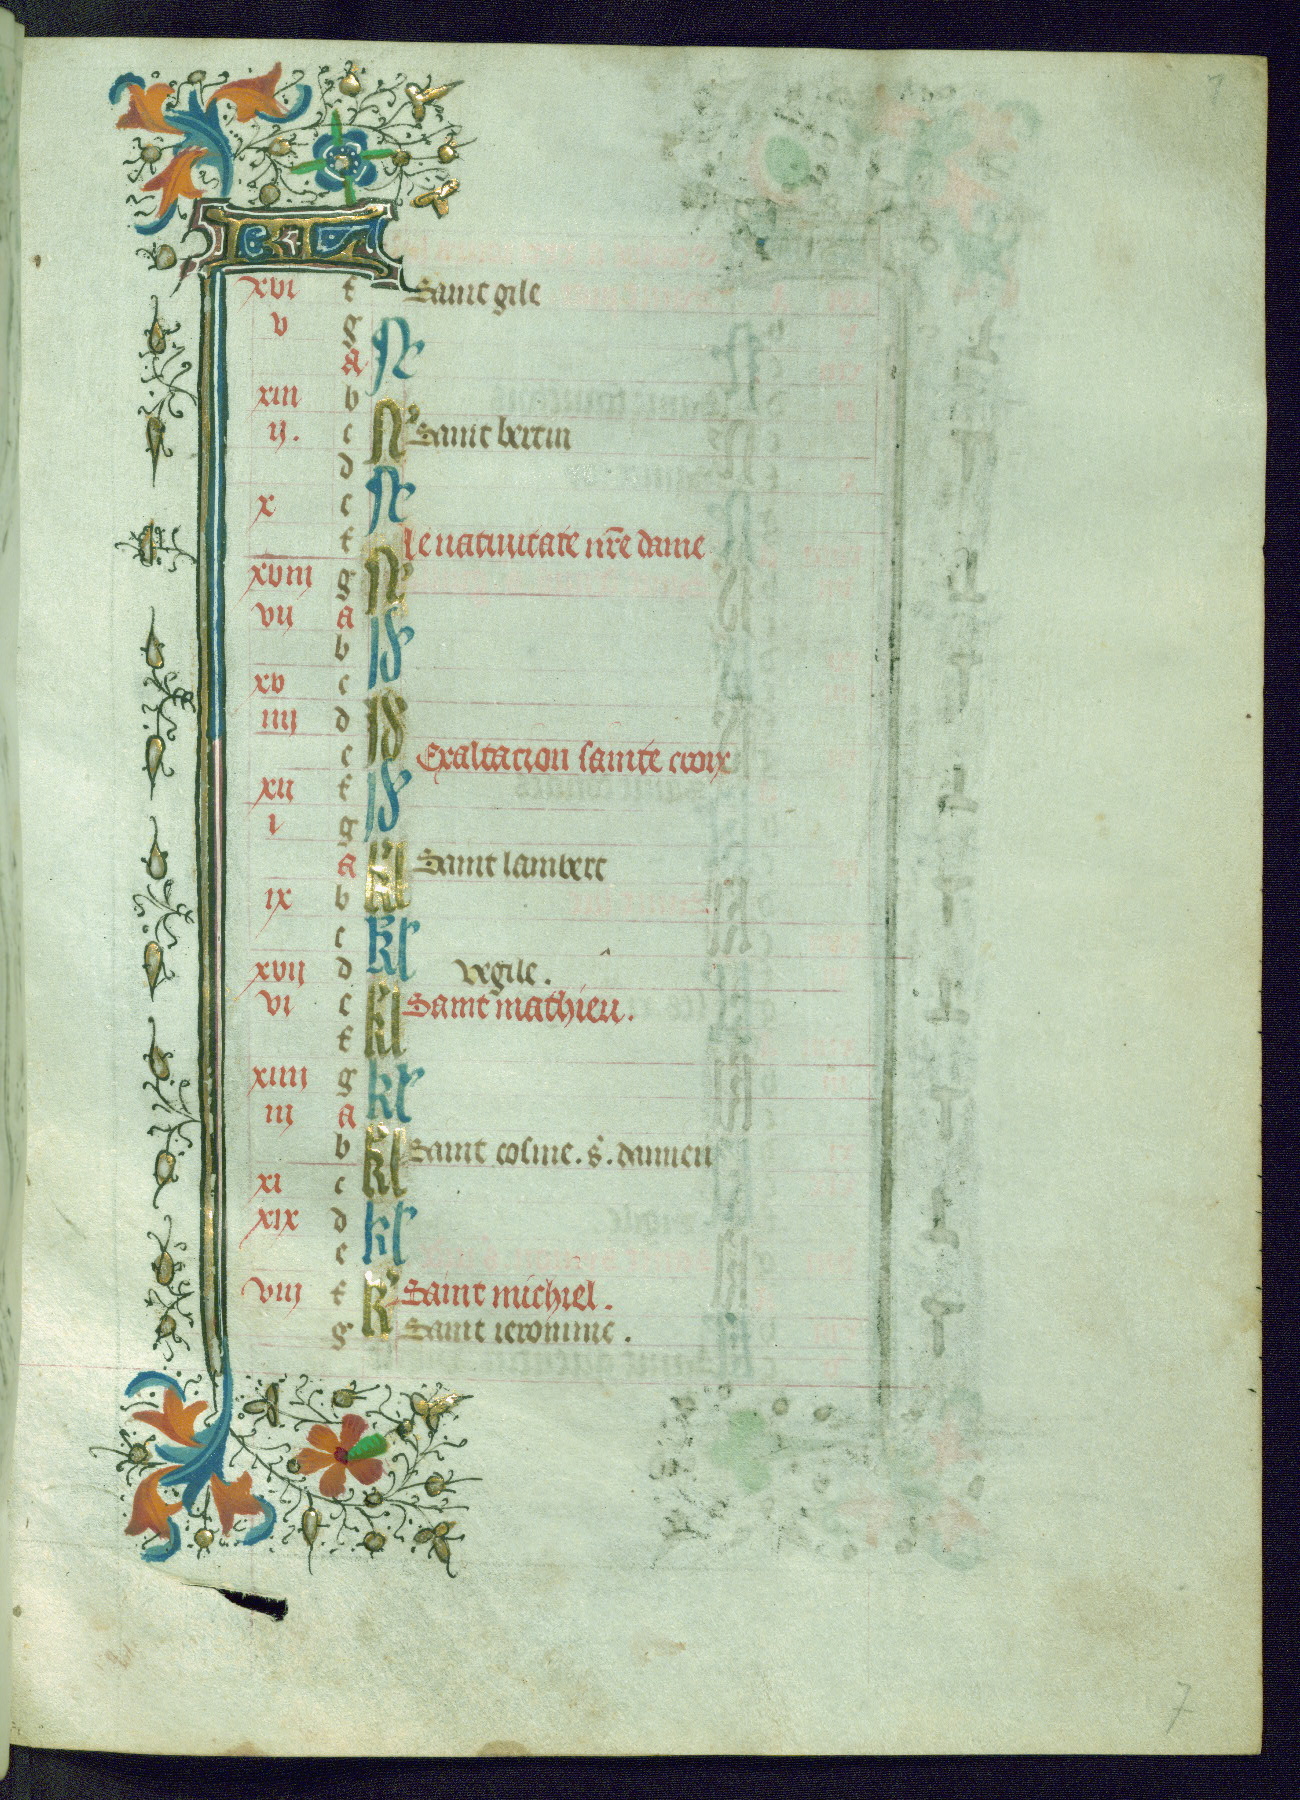 xvi f Saint gile
v g N
A
xiii b
ii. c N Saint bertin
d
x e N
f Le natiuitate nr̄e dame
xviii g N
vii A
b Id
xv c
iiii d Id
e Exaltacion sainte croix
xii f Id
i g
A kl Saint lambert
ix b
c kl
xvii d vegile.
vi e kl Saint mathieu.
f
xiiii g kl
iii A
b kl Saint cosme. s. damien
xi c
xix d kl
e
viii f k Saint michiel.
g Saint ieronime.
7
7